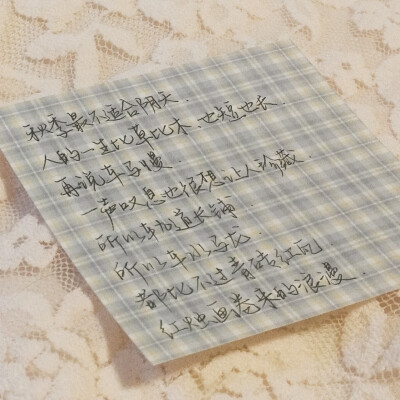 秋季最不适合阴天.
人的一生比草比木、也短也长.
再说车马慢.
一声叹息也很想让人珍藏.
所以车加道长铺
所以车水马龙.
都比不过青砖红瓦
红烛画卷来的浪漫.